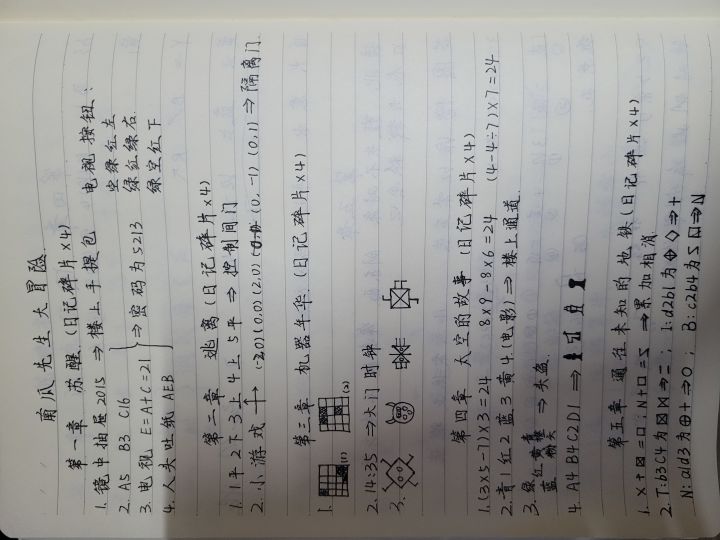 南瓜先生大冒险
第一章 苏醒 (日记碎片×4)
1. 镜中抽屉2015 ⇒ 楼上手提包
2. A5 B3 C16
3. 电视 E=A+C=21 ⇒ 密码为5213
4. 人头吐纸 AEB
电视按钮:
空绿红左
绿红绿右
绿空红下
第二章 逃离 (日记碎片×4)
1. 1平2下3上4上5平 ⇒ 控制闸门
2. 小游戏 (-2,0)(0,0)(2,0)(0,-1)(0,1) ⇒ 隔离门
第三章 机器年华 (日记碎片×4)
1. (1) (2)
2. 14:35 ⇒ 大门时钟
3.
第四章 太空的故事 (日记碎片×4)
1. (3×5-1)×3=24 8×9-8×6=24 (4-4÷7)×7=24
2. 青1红2蓝3黄4 (电影) ⇒ 楼上通道
3. 绿红黄 ⇒ 头盔
蓝
4. A4B4C2D1 ⇒
第五章 通往未知的地铁 (日记碎片×4)
1. X+⊠=□; N+□=Σ ⇒ 累加相消
2. T:b3C4为⊠⋈⇒=; I:d2b1为⊕◇⇒+
N:a1d3为⊕+⇒○; B:c2b4为Σ⇒N